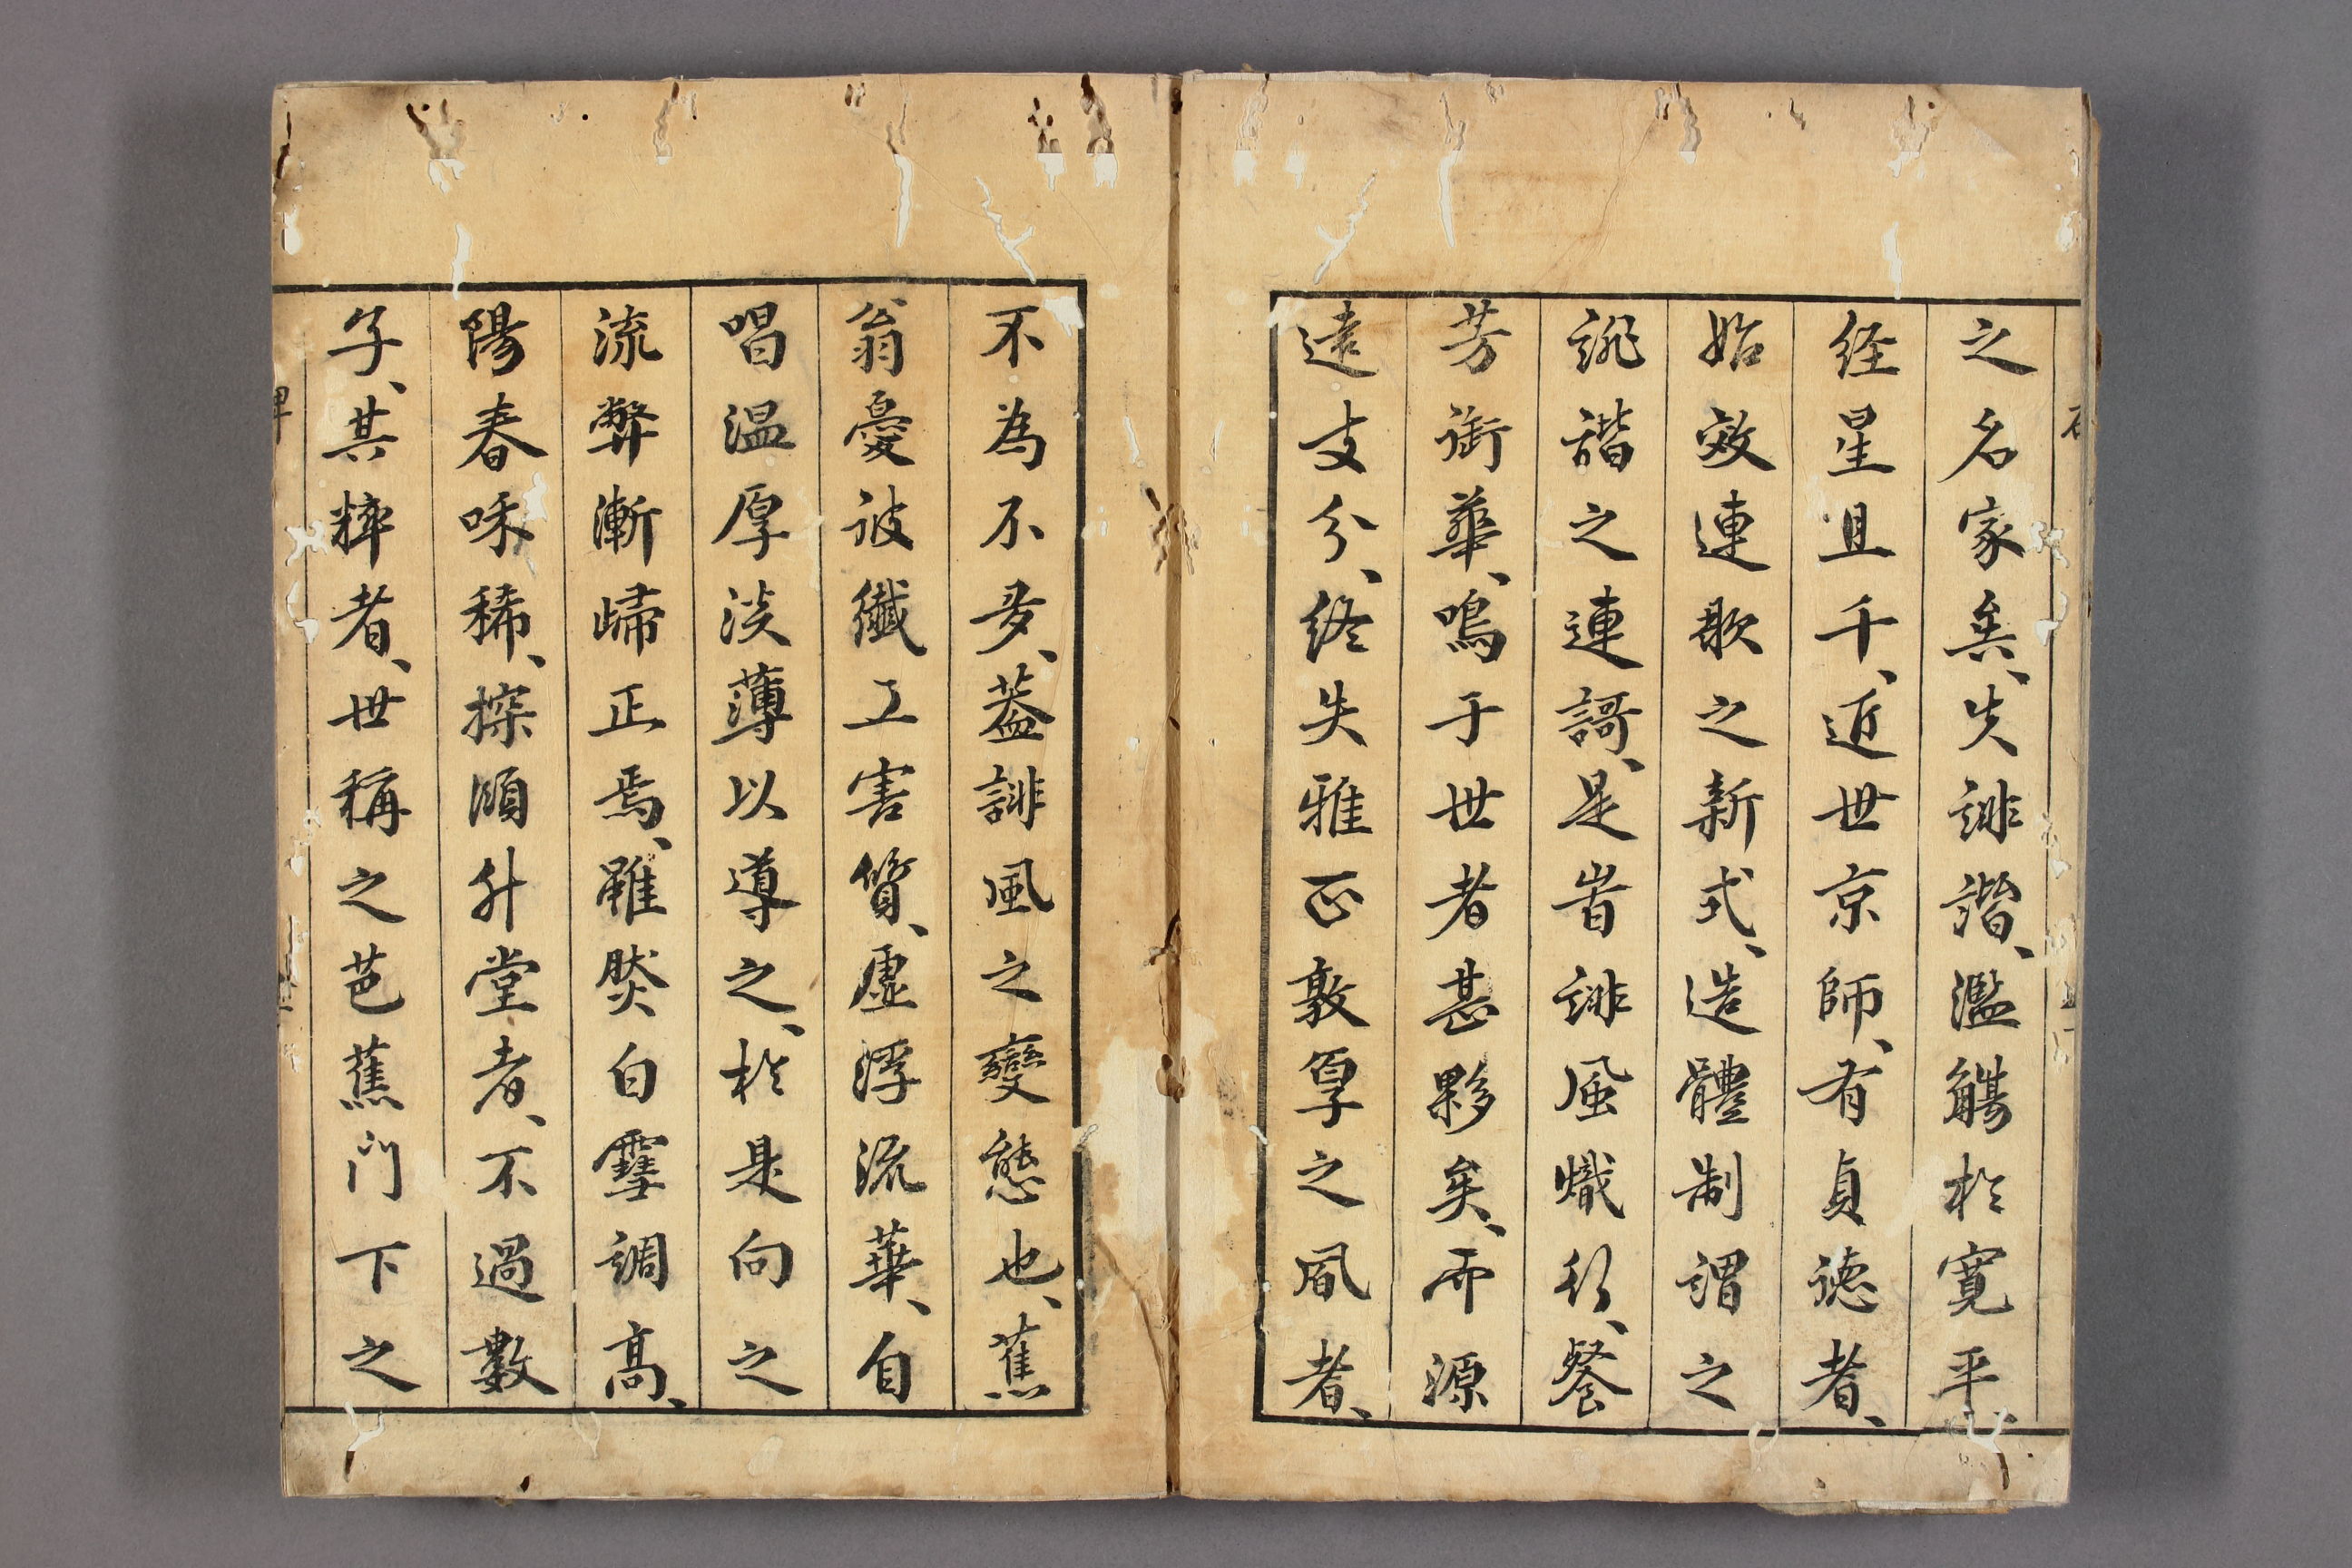 之名家矣、夫誹諧、濫觴於寛平、
経星且千、近世京師、有貞徳者、
始效連歌之新式、造體制謂之
誹諧之連謌、是昔誹風熾、形、餐
芳衒華、鳴于世者甚夥矣、而源
遠支分、終失雅正敦厚之風者、
不為不多、蓋誹風之變態也、蕉
翁憂彼纖工害質、虛浮流華、自
唱温厚淡薄以導之、於是向之
流弊漸皈正焉、雖然白雪調高、
陽春味稀、探頤升堂者、不過數
子、其粹者、世稱之芭蕉門下之